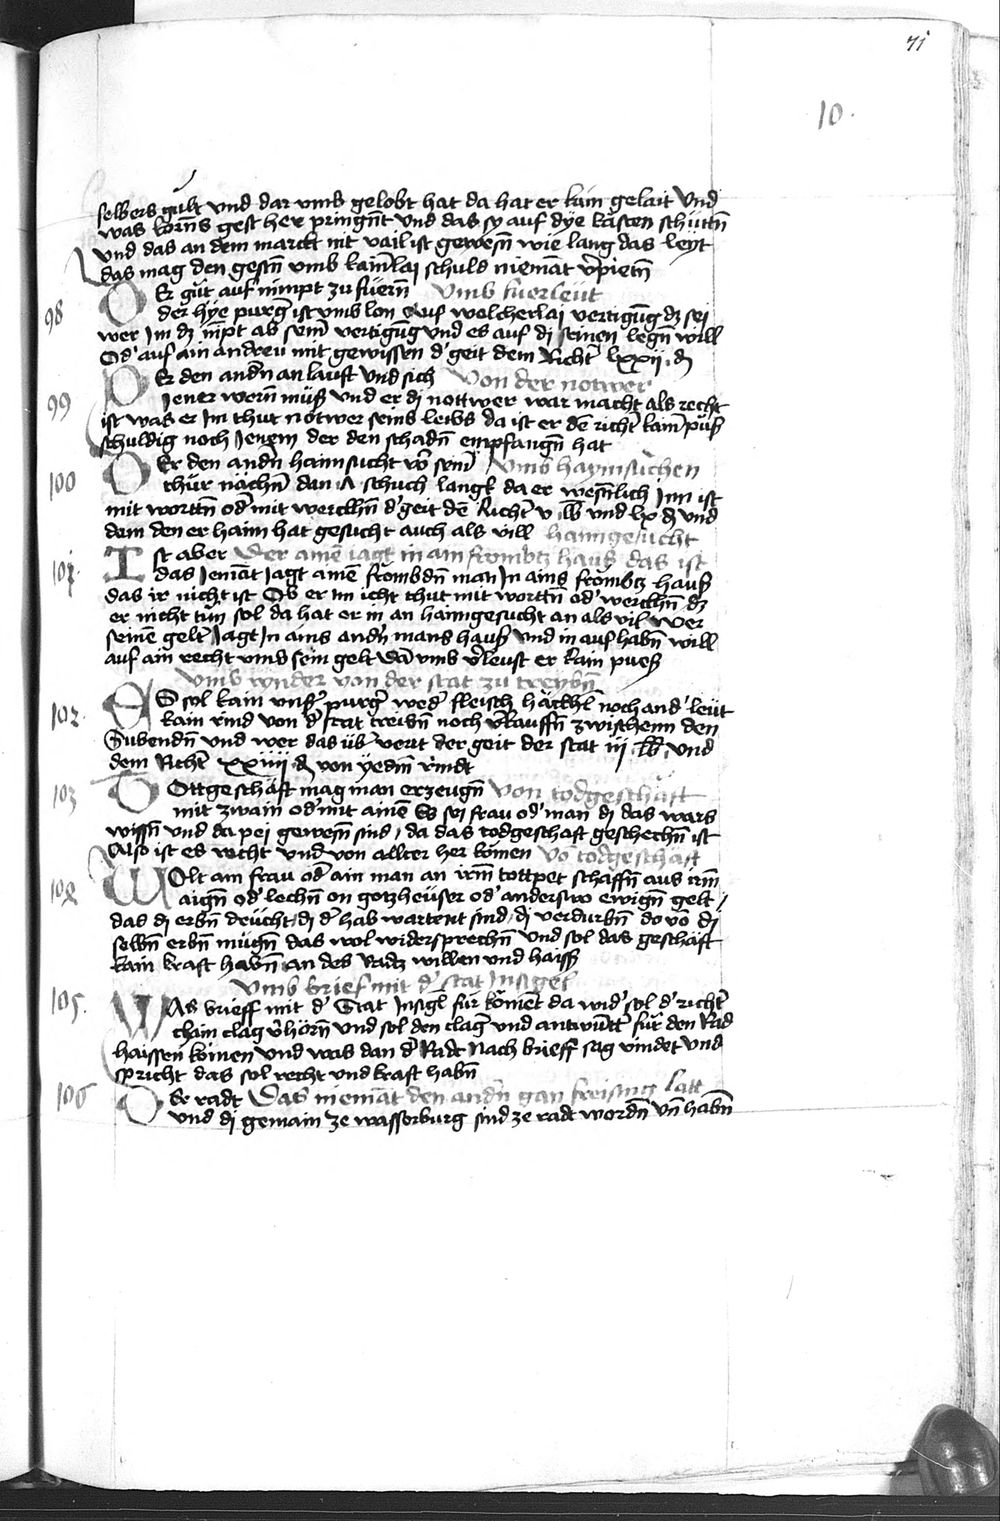 71
10.
selbers gult und dar umb gelobt hat da hat er kain gelait Und
was korns gest her pringnt Und das sy auf dye kasten schuttn
Und das an dem marckt nit vail ist gewesn wie lang das leyt
das mag den gestn umb kainlai schuld niemant v̓pietn
98 Er gut auf nimpt zu fuern Umb fuerleut
der hye purg̓ ist umb lon Auf welcherlai vertigung dz sei
wer im dz nipt ab sein̓ vertigug und es auf dj seinen legn will
Od̓ auf ain andreu mit gewissen d̓ geit dem Richt̓ lxxij . d
99 Er den andn̓ an lauft Und sich Von der notwer
Jener wern̄ muß Und er dj nottwer war macht als recht
ist was er Im thut notwer seins leibs da ist er de richt̓ kain puß
schuldig noch Jenem der den schadn̄ empfangn̄ hat
100 Er den andn̓ haimsucht vor sein̓ Umb haymsuchen
thur nachn̄ dan A schuch langk da er wesnlich Inn ist
mit wortn̄ od̓ mit werckhn̄ d̓ geit de Richt̓ v lb und lx d und
dem den er haim hat gesucht auch als vill haimgesucht
101 Ist aber Der aine iagt in ain frombtz haus das ist
das Jemat Jagt aine frombdn̄ man In ains frombtz hauß
das ir nicht ist Ob er im icht thut mit wortn̄ od̓ werckhn̄ dz
er nicht tun sol da hat er in an haimgesucht an als vil Wer
seine gelt̓ Jagt In ains andn̓ mans hauß Und in auf habn̄ will
auf ain recht umb sein gelt da umb v̓leust er kain pueß
Umb rynder von der stat zu treybn̄
102 Es sol kain uns̓ purg̓ wed̓ fleisch hackhl̓ noch and̓ leut
kain rind von d̓ stat treibn̄ noch v̓kauffn̄ zwischenn den
Subendn̄ und wer das ub̓ vert der geit der stat iij lb und
dem Richt̓ xxiiij d von yednm rindt
103 Tottgeschaft mag man erzeugn̄ Von todgeschaft
mit zwain od̓ mit aine Es sei frau od̓ man dj das wars
wissn̄ und da pei gewesn̄ sind, da das todgeschaft geschechn̄ ist
Also ist es recht und von allter her komen Vo todgeschaft
104 Wolt ain frau od̓ ain man an irm tottpet schaffn̄ aus irm
aign̄ od̓ lechn̄ on gotzheuser od̓ anderswo ewign̄ gelt,
das dj erbn̄ deucht, dj d̓ hab wartent sind, dj verdurbn̄ do vo dj
selbn̄ erbn̄ mugn̄ das wol widersprechn̄ Und sol das geschaft
kain kraft habn̄ an des Radtz willen und haiss
Umb brief mit d̓ stat Insigel
105. Was brieff mit d̓ Stat Insigl̓ fur koment da wid̓ sol d̓ richt̓
chain clag v̓horn̄ und sol den clag̓ und antwurt̓ fur den Rad
haissen komen und was dan d̓ Radt nach brieff sag vindet und
spricht das sol recht und kraft habn̄
106 Der radt Das niemat den andn̓ gan freising latt
und dj gemain ze wasserburg sind ze radt wordn̄ vn̄ habn̄